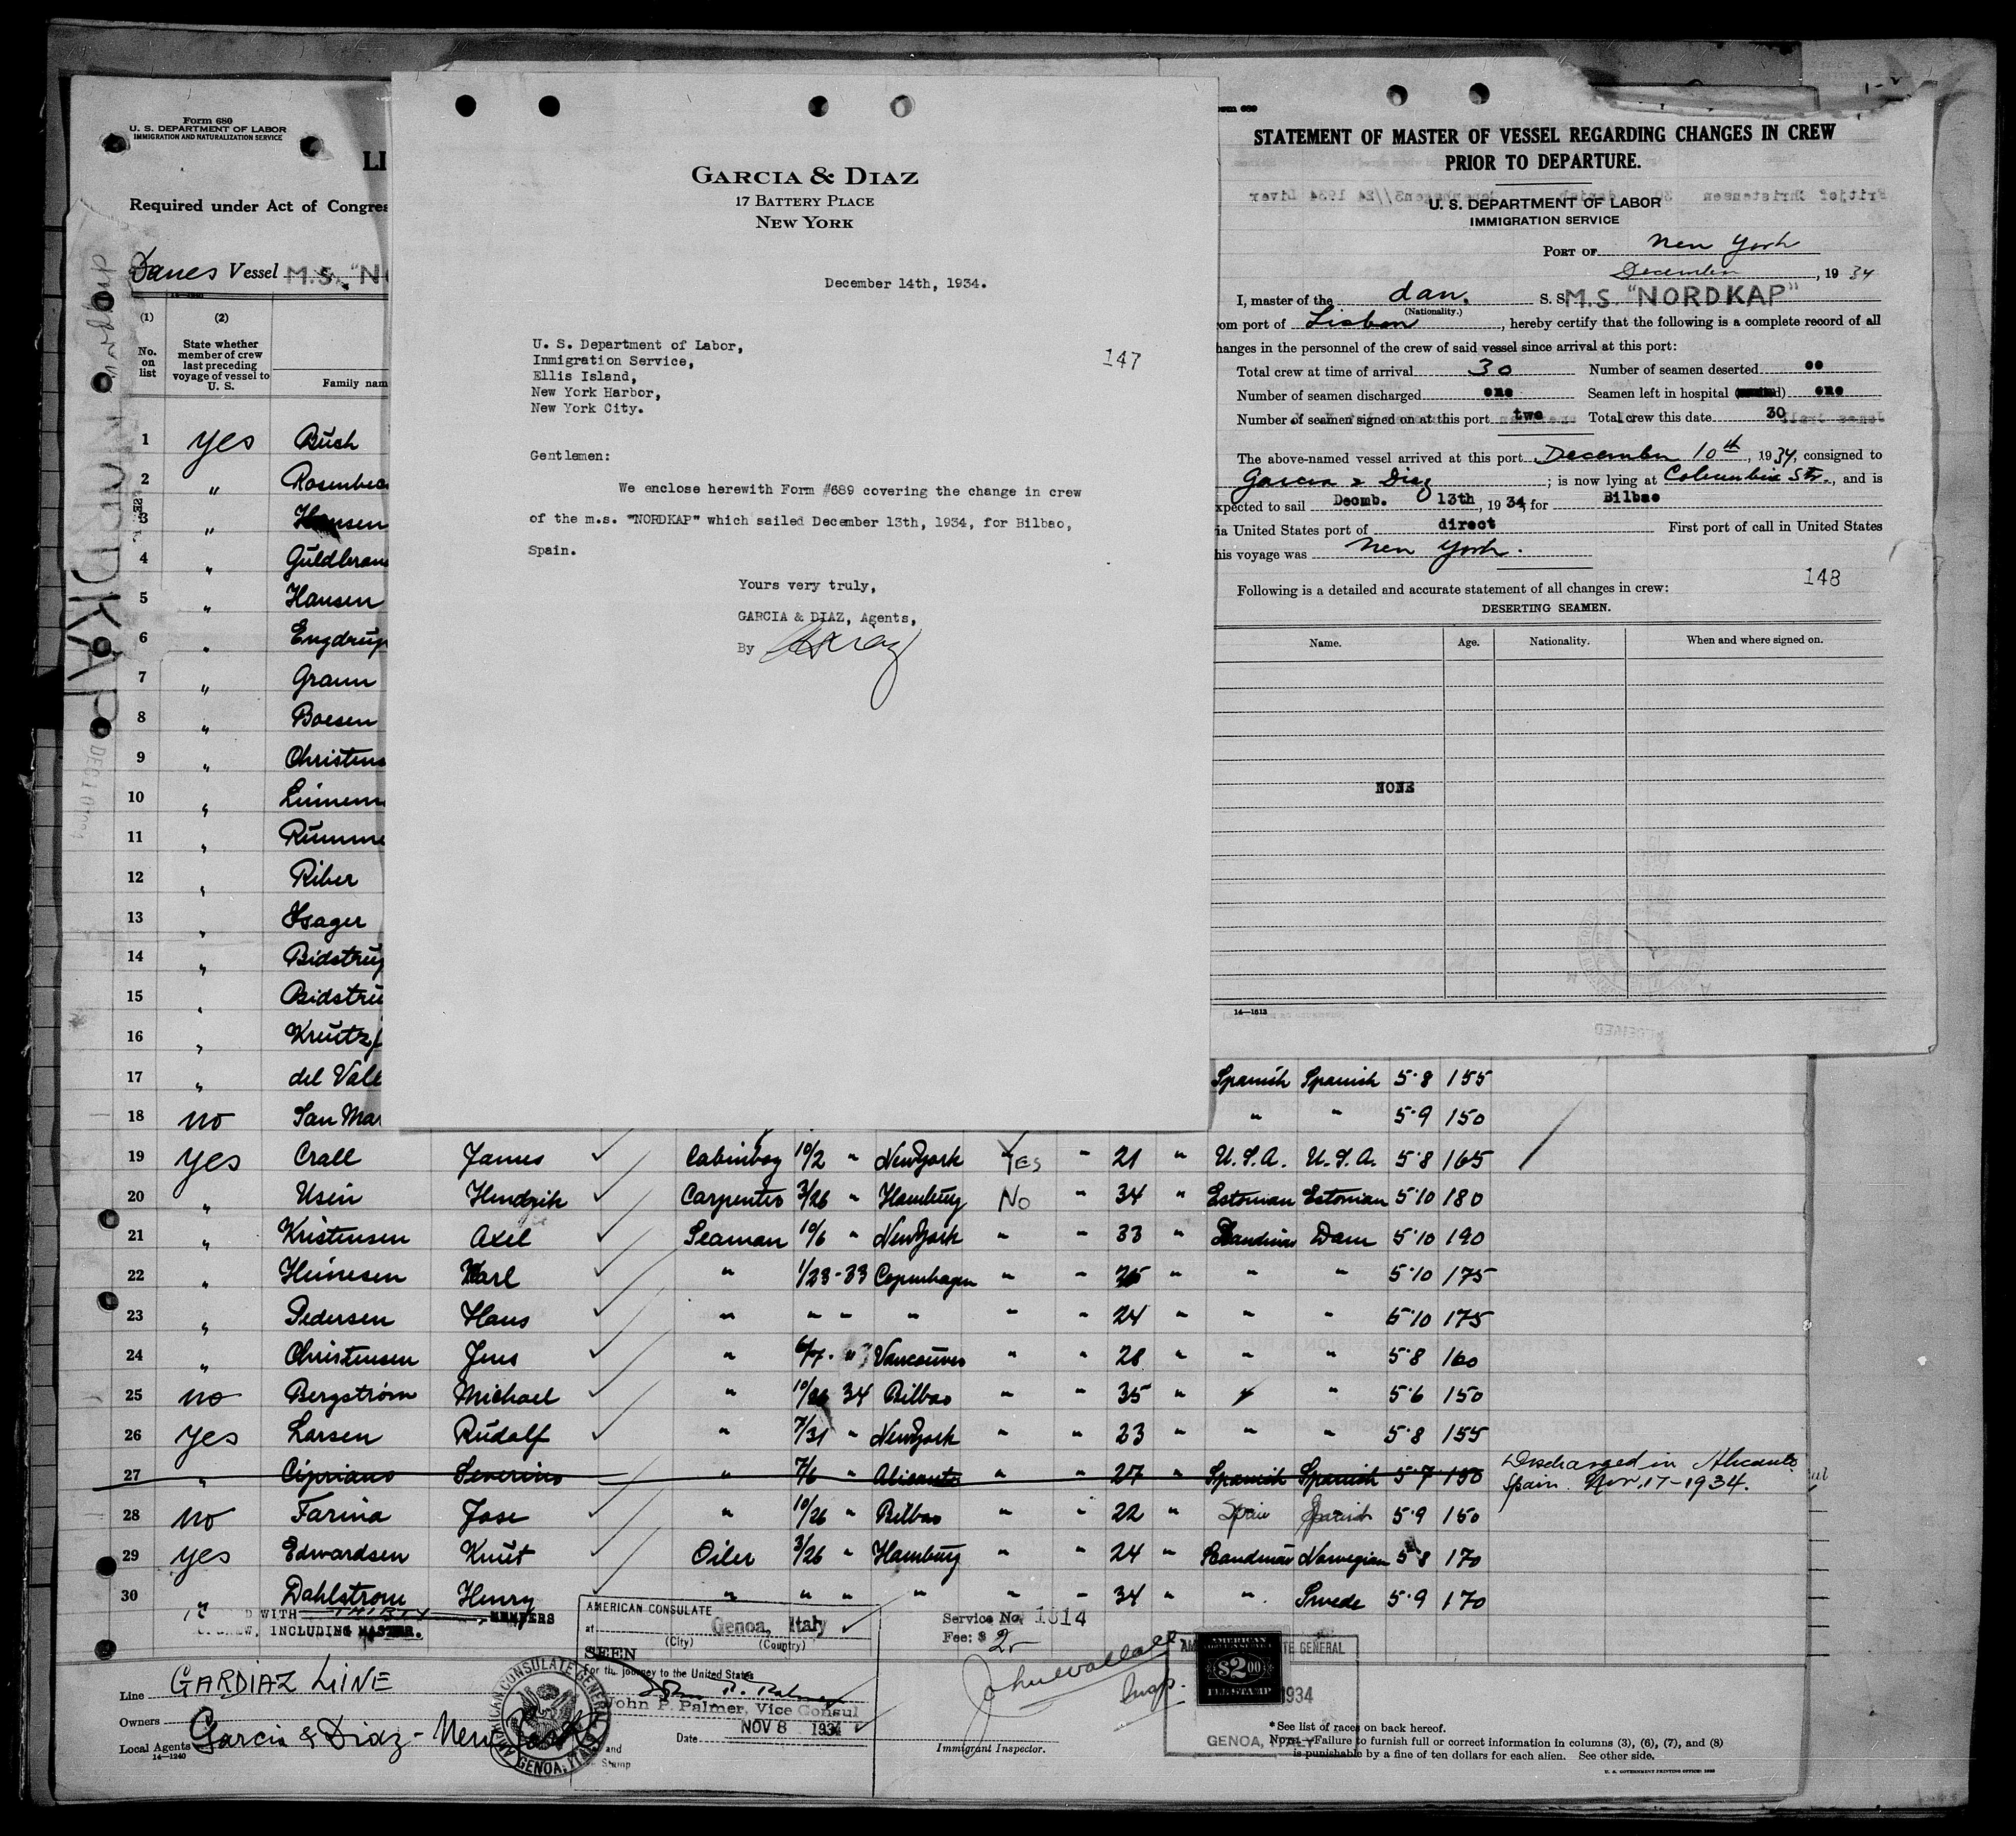 Form 680
U. S. DEPARTMENT OF LABOR
IMMIGRATION AND NATURALIZATION SERVICE
LI
Required under Act of Congre
Danes Vessel M.S. "N
(1) (2)
No. on list
State whether member of crew last preceding voyage of vessel to U. S.
Family nam
1 yes Buch
2 " Rosenbe
3 " Hansen
4 " Guldbran
5 " Hansen
6 " Engdrup
7 " Graun
8 " Boesen
9 " Christens
10 "
11 " Rumme
12 " Riber
13 " Isager
14 " Bidstrup
15 " Bidstru
16 " Kreutz
17 " del Vall
18 no San Mar
NORDKAP
GARCIA & DIAZ
17 BATTERY PLACE
NEW YORK
December 14th, 1934.
147
U. S. Department of Labor,
Inmigration Service,
Ellis Island,
New York Harbor,
New York City.
Gentlemen:
We enclose herewith Form #689 covering the change in crew
of the m.s. "NORDKAP" which sailed December 13th, 1934, for Bilbao,
Spain.
Yours very truly,
GARCIA & DIAZ, Agents,
By
orm 689
STATEMENT OF MASTER OF VESSEL REGARDING CHANGES IN CREW
PRIOR TO DEPARTURE.
U. S. DEPARTMENT OF LABOR
IMMIGRATION SERVICE
PORT OF New York
December, 1934
I, master of the dan. S. S. M.S. "NORDKAP"
(Nationality.)
om port of Lisbon, hereby certify that the following is a complete record of all
hanges in the personnel of the crew of said vessel since arrival at this port:
Total crew at time of arrival 30 Number of seamen deserted oo
Number of seamen discharged one Seamen left in hospital one
Number of seamen signed on at this port two Total crew this date 30
The above-named vessel arrived at this port December 10th, 1934, consigned to
Garcia & Diaz; is now lying at Columbia Str., and is
xpected to sail Decmb. 13th, 1934, for Bilbao
ia United States port of direct First port of call in United States
his voyage was New York.
148
Following is a detailed and accurate statement of all changes in crew:
DESERTING SEAMEN.
Name. Age. Nationality. When and where signed on.
NONE
14—1613
Spanish Spanish 5·8 155
" " 5·9 150
19 yes Crall James Cabinboy 10/2 " New York Yes " 21 " U.S.A. U.S.A. 5·8 165
20 " Usin Hendrik Carpenter 3/26 " Hamburg No " 34 " Estonian Estonian 5·10 180
21 " Kristensen Axel Seaman 10/6 " New York " " 33 " Scandinav Dane 5·10 190
22 " Heinesen Karl " 1/23-33 Copenhagen " " 25 " " " 5·10 175
23 " Pedersen Hans " " " " " " 24 " " " 5·10 175
24 " Christensen Jens " 6/7 " Vancouver " " 28 " " " 5·8 160
25 no Bergström Michael " 10/26 34 Bilbao " " 35 " " " 5·6 150
26 yes Larsen Rudolf " 7/31 " New York " " 23 " " " 5·8 155
27 " Cipriano Severino " 7/6 " Alicante " " 27 " Spanish Spanish 5·7 150 Discharged in Alicante
Spain. Nov. 17-1934.
28 no Farina Jose " 10/26 " Bilbao " " 22 " Spain Spanish 5·9 150
29 yes Edwardsen Knut Oiler 3/26 " Hamburg " " 24 " Scandinav Norwegian 5·8 170
30 " Dahlstrom Henry " " " " " " 34 " " Swede 5·9 170
WITH THIRTY MEMBERS
CREW, INCLUDING MASTER.
AMERICAN CONSULATE
at Genoa, Italy
(City) (Country)
SEEN
For the journey to the United States
John P. Palmer
John P. Palmer, Vice Consul
Date NOV 8 1934
and
Stamp
AMERICAN CONSULATE GENERAL
GENOA, ITALY
Service No. 1614
Fee: $ 2
John Wallace
Insp.
Immigrant Inspector.
AMERICAN
$2.00
FEE STAMP
TE GENERAL
1934
GENOA, ITALY
Line GARDIAZ LIINE
Owners
Local Agents Garcia & Diaz - New York
14—1240
*See list of races on back hereof.
NOTE.—Failure to furnish full or correct information in columns (3), (6), (7), and (8)
is punishable by a fine of ten dollars for each alien. See other side.
U. S. GOVERNMENT PRINTING OFFICE: 1933